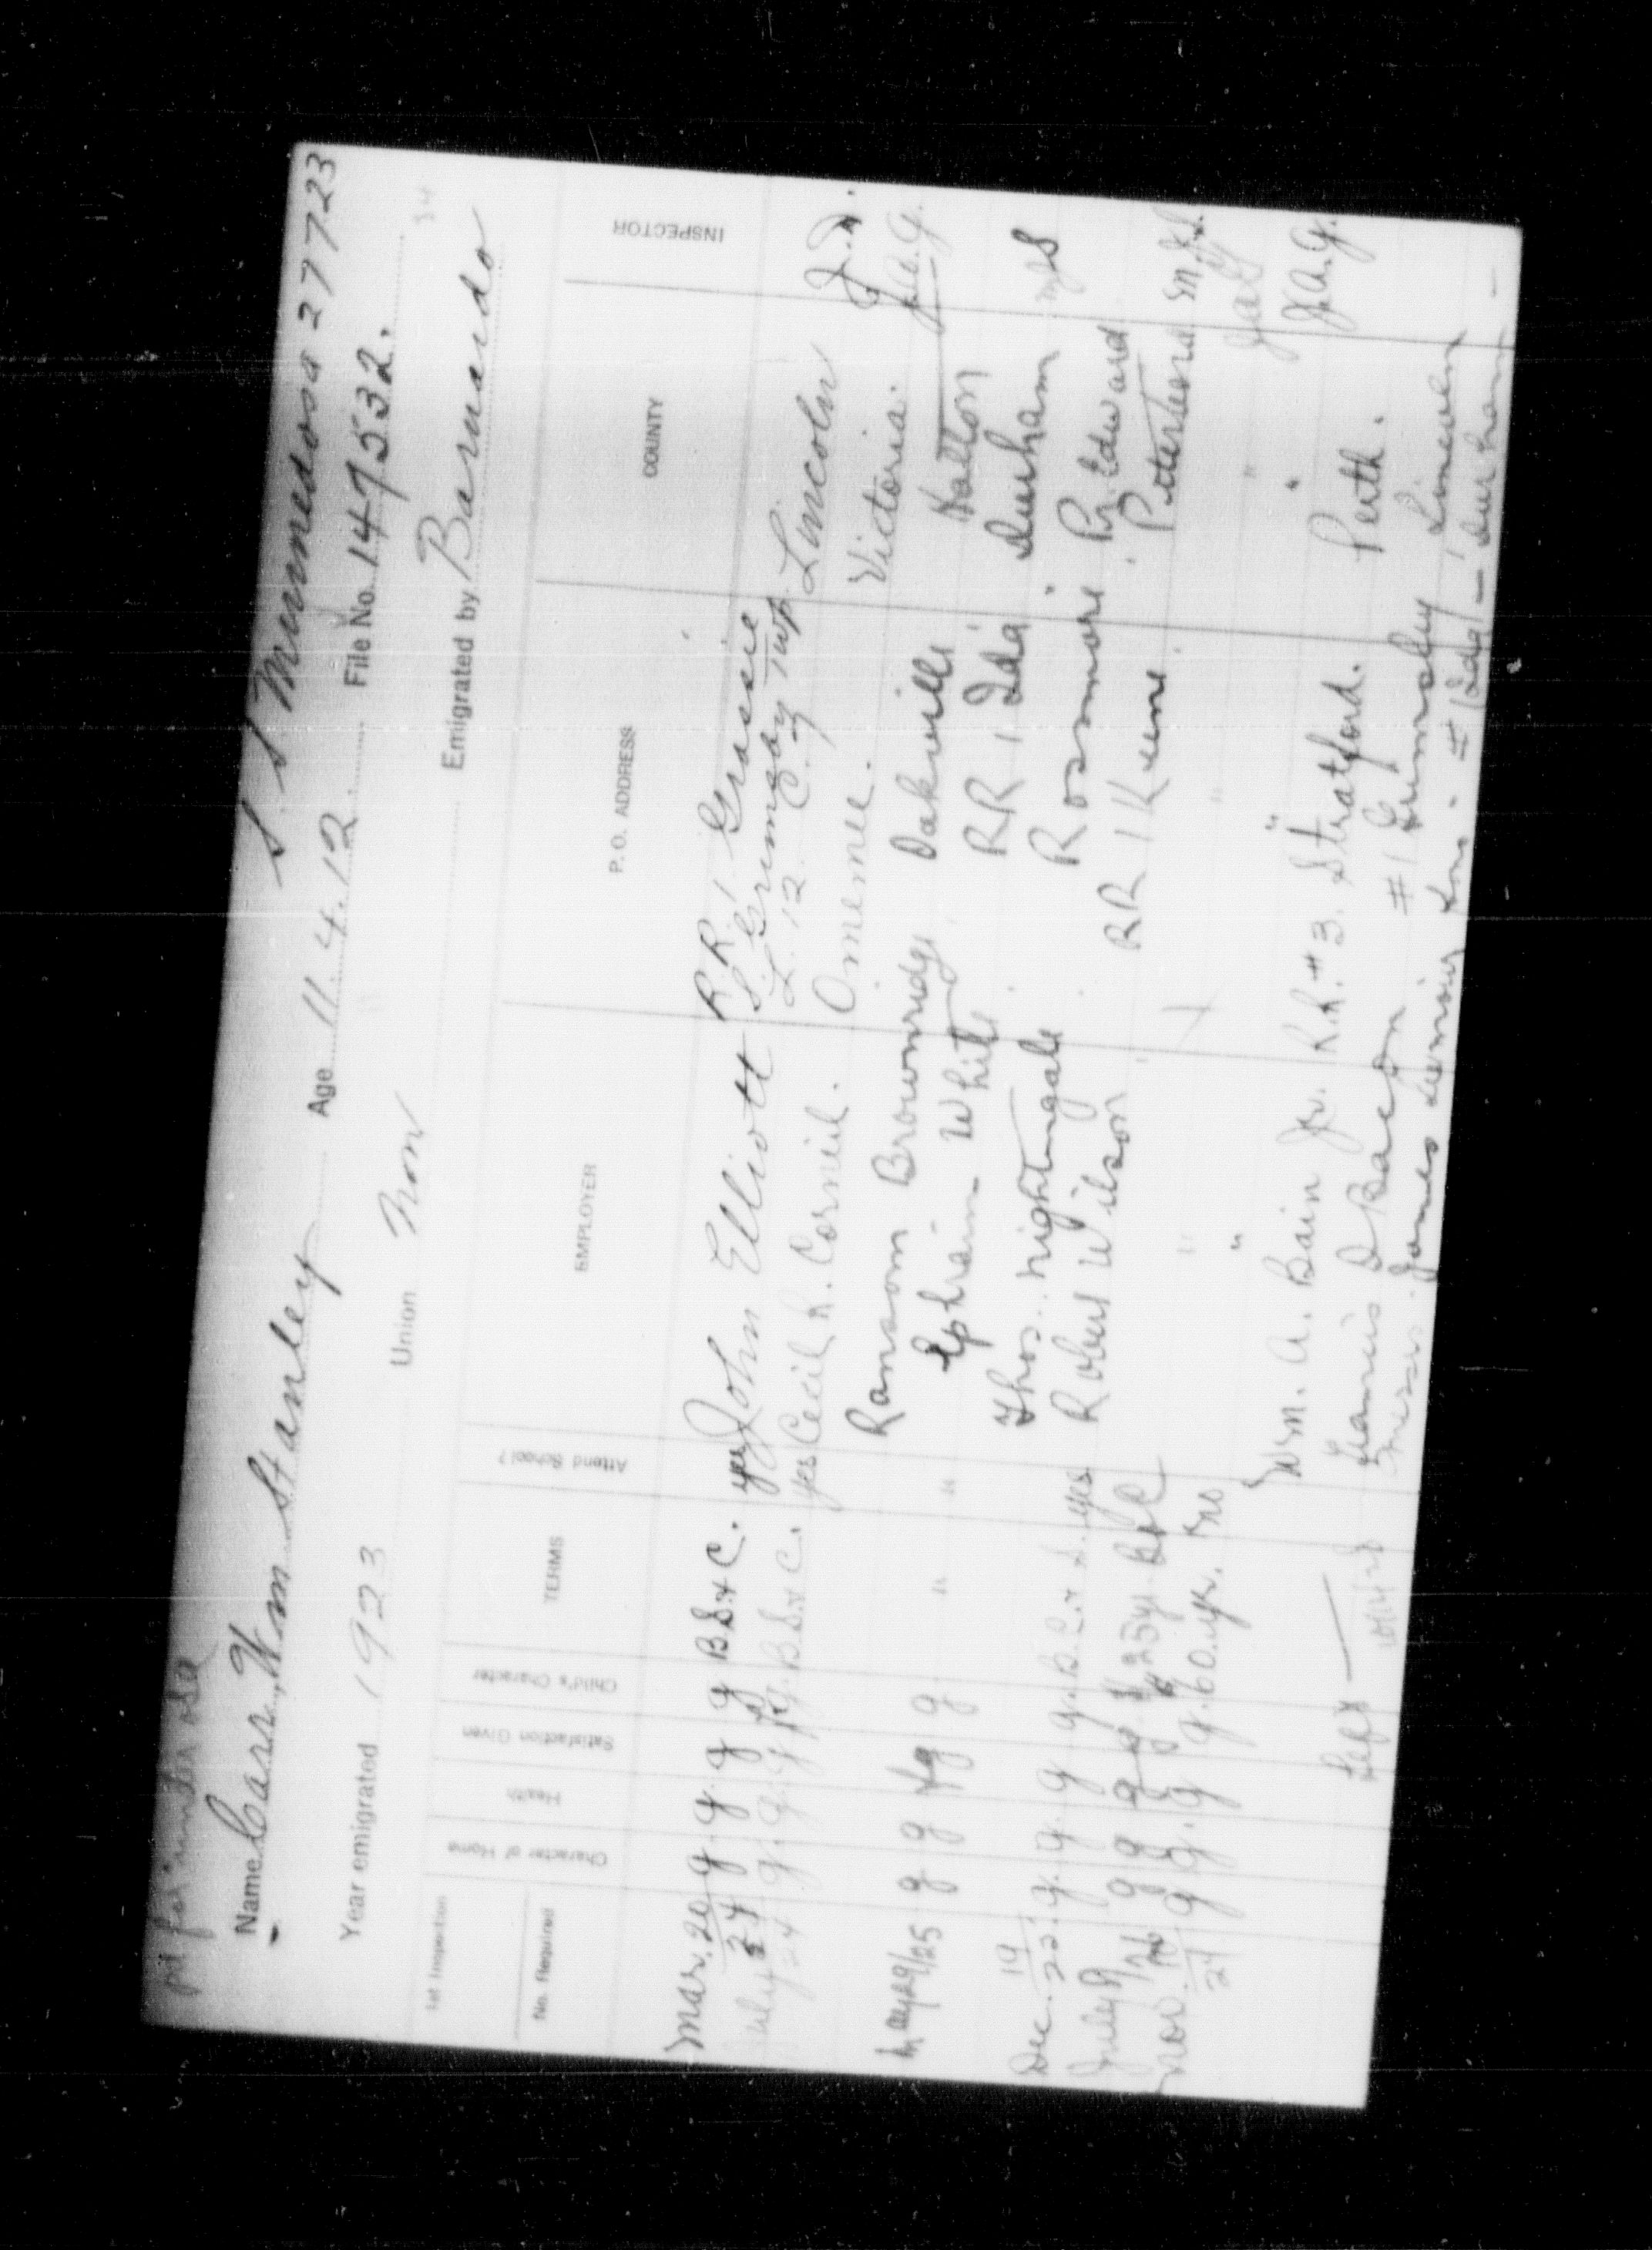 S.S. Minnedosa 27723
Name Carr, Wm Stanley Age 11.4.12 File No. 147532.
Year emigrated 1923 Union Emigrated by Barnardo
1st Inspection
No. Required Character of Home Health Satisfaction Given Child's Character TERMS Attend School? EMPLOYER P. O. ADDRESS COUNTY INSPECTOR
Mar. 20/24 g. g. g g B.S.&C. yes John Elliott R R 1 Grassie
S. Grimsby Twp Lincoln
L. 12 C. 7
July 24 g. g. g B.S.&C. yes Cecil R. Corneil. Omemee. Victoria.
May 29/25 g g g " " Ransom Brownridge Oakville Halton J.A.G.
Ephraim White RR 1 Ida Durham
Dec. 19/25 g. g. g g. B.C.&S. yes Thos. Nightingale Rossmore Pr Edward
July g g g 25 yr B&C Robert Wilson RR 1 Keene Peterboro
Nov. g g. g g. 60. yr. no " " "
Left — Wm. A. Bain Jr. R.R. #3. Stratford. Perth. J.A.G.
Francis D Bacon #1 Lincoln
James # 1 Ida — Durham —